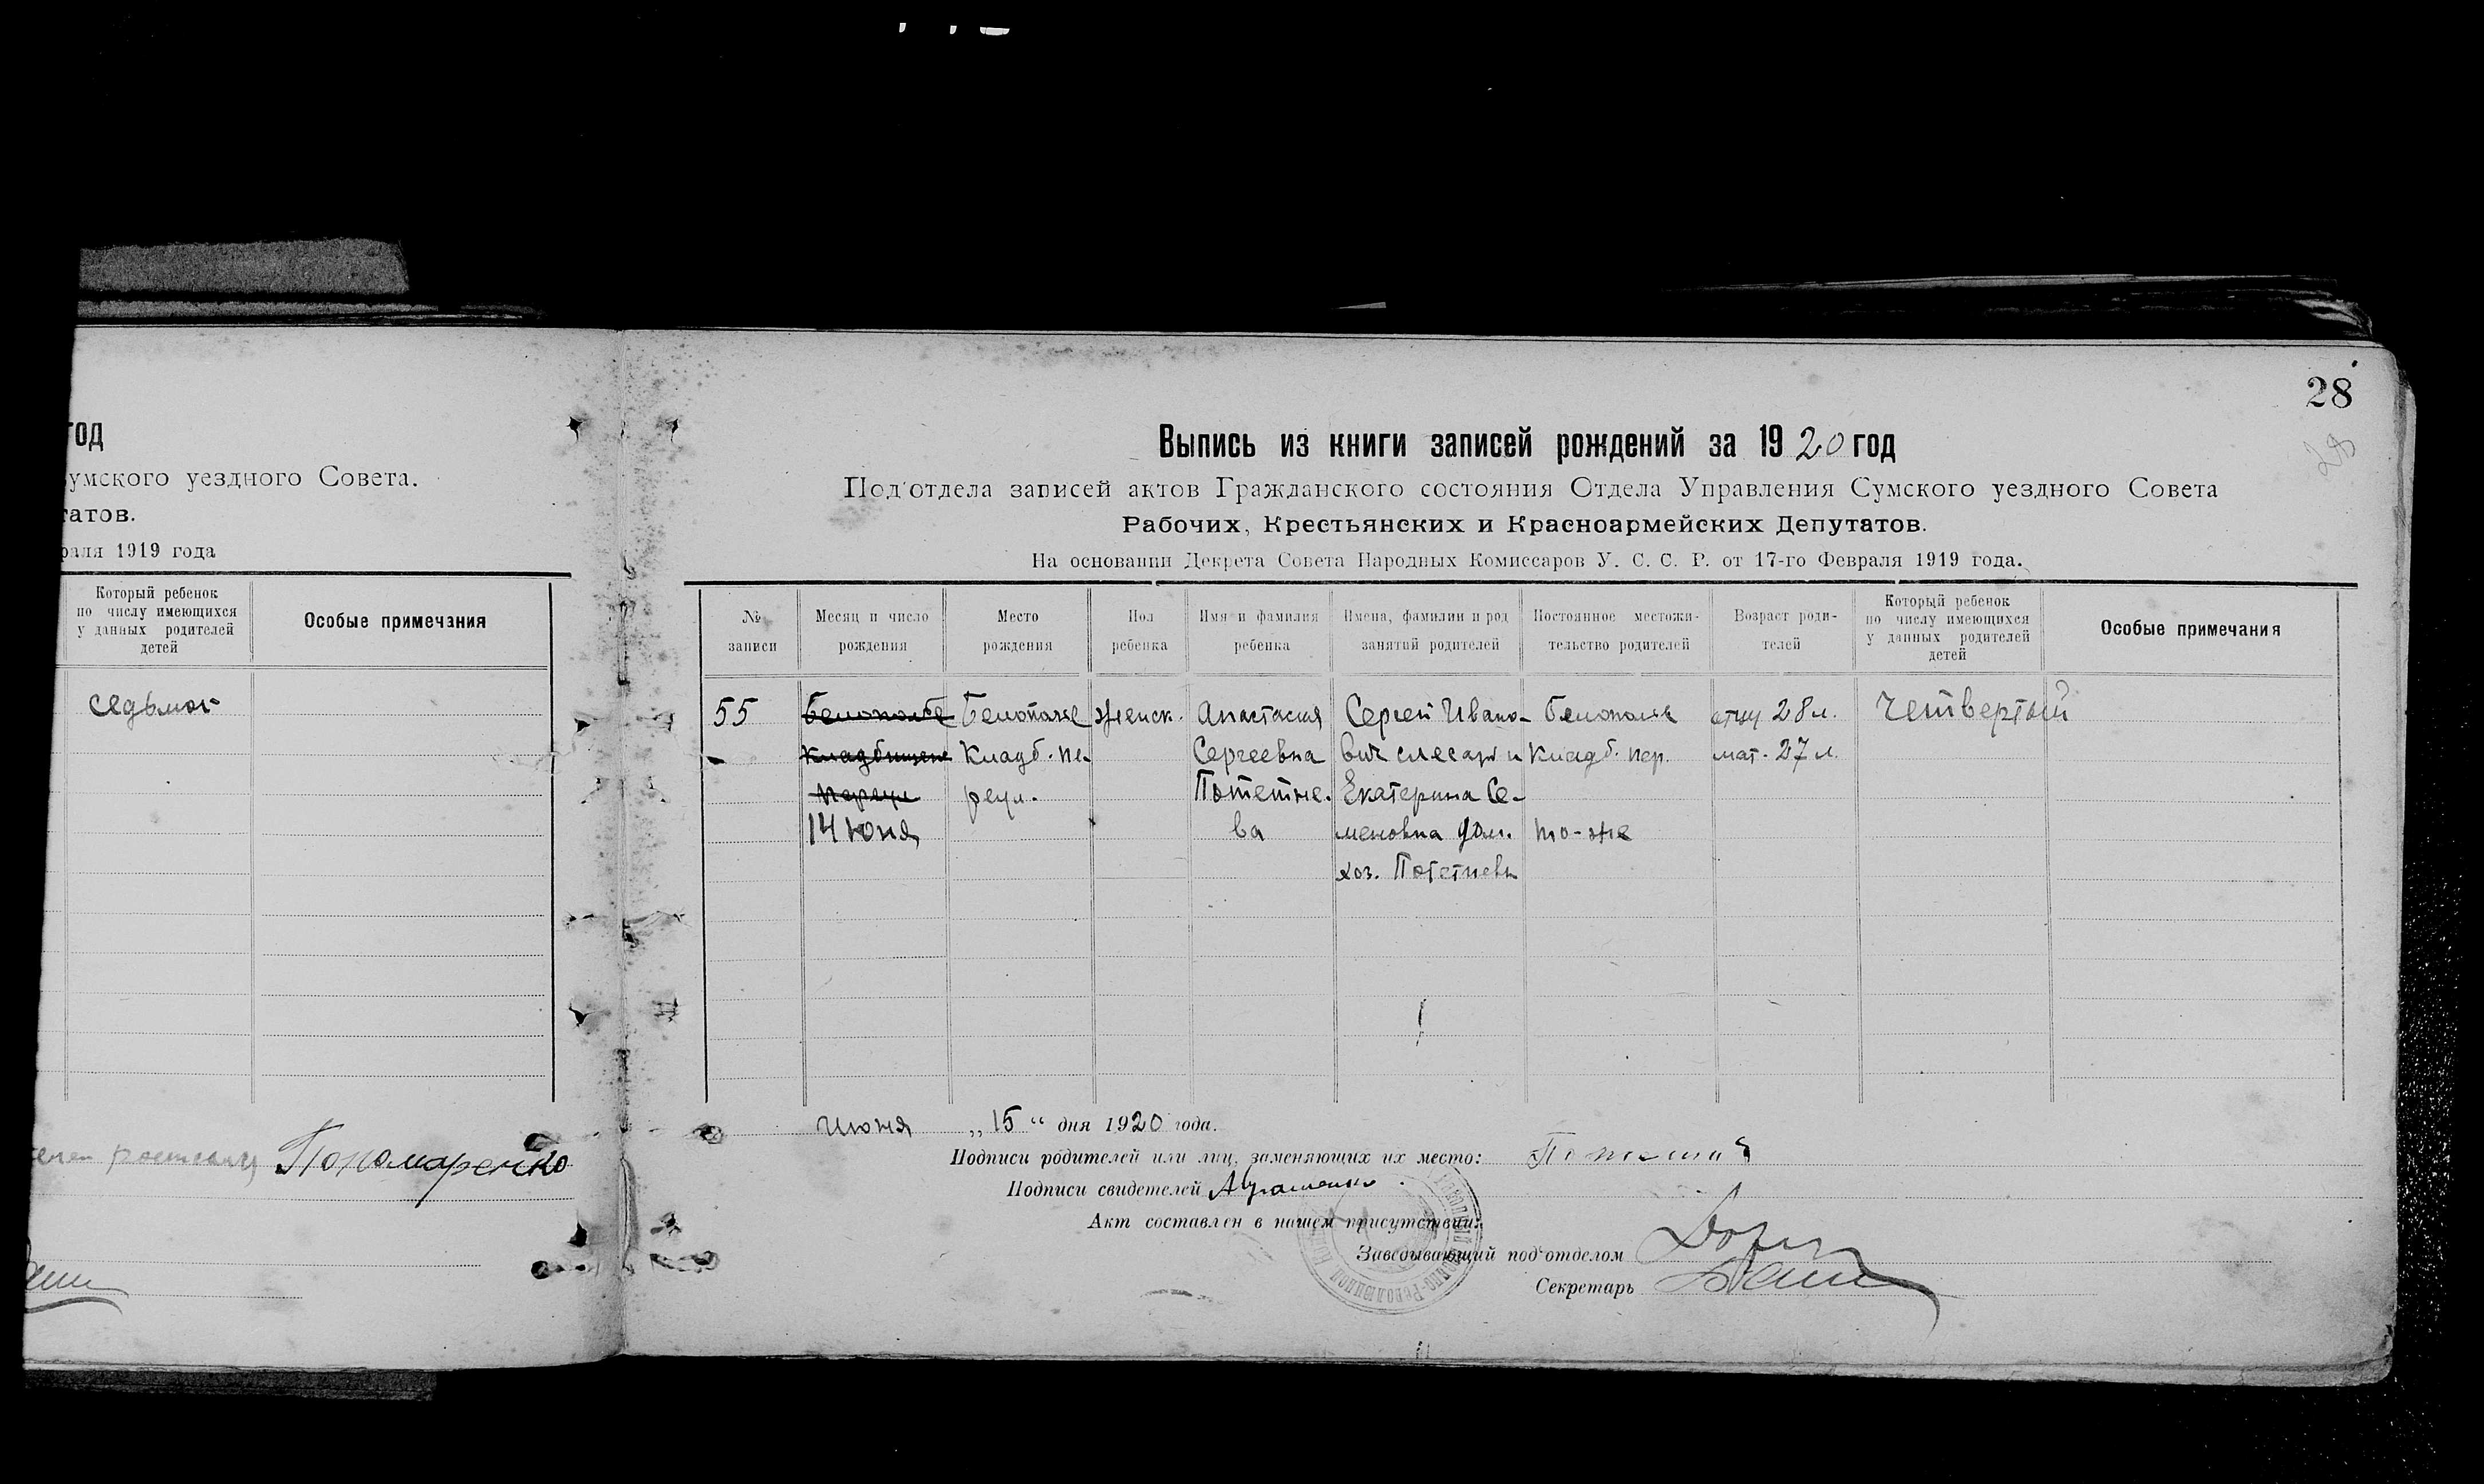 год
умского уездного Совета.
татов.
раля 1919 года
Который ребенок
по числу имеющихся
у данных родителей
детей
Особые примечания
седьмой
Пономаренко
28
Выпись из книги записей рождений за 1920 год
Под'отдела записей актов Гражданского состояния Отдела Управления Сумского уездного Совета
Рабочих, Крестьянских и Красноармейских Депутатов.
На основании Декрета Совета Народных Комиссаров У. С. С. Р. от 17-го Февраля 1919 года.
№ записи
Месяц и число рождения
Место рождения
Пол ребенка
Имя и фамилия ребенка
Имена, фамилии и род занятий родителей
Постоянное местожи-
тельство родителей
Возраст роди-
телей
Который ребенок
по числу имеющихся
у данных родителей
детей
Особые примечания
55 Белополье женск. Анастасия Сергей Ивано- Белополье отцу 28 л. Четвертый
Кладб. пе- Сергеевна вич слесарь и Кладб. пер. мат. 27 л.
реул. Екатерина Се-
14 июня ва меновна дом. то-же
хоз.
июня „15“ дня 1920 года.
Подписи родителей или лиц, заменяющих их место:
Подписи свидетелей
Акт составлен в нашем присутствии:
Заведывающий под'отделом
Секретарь